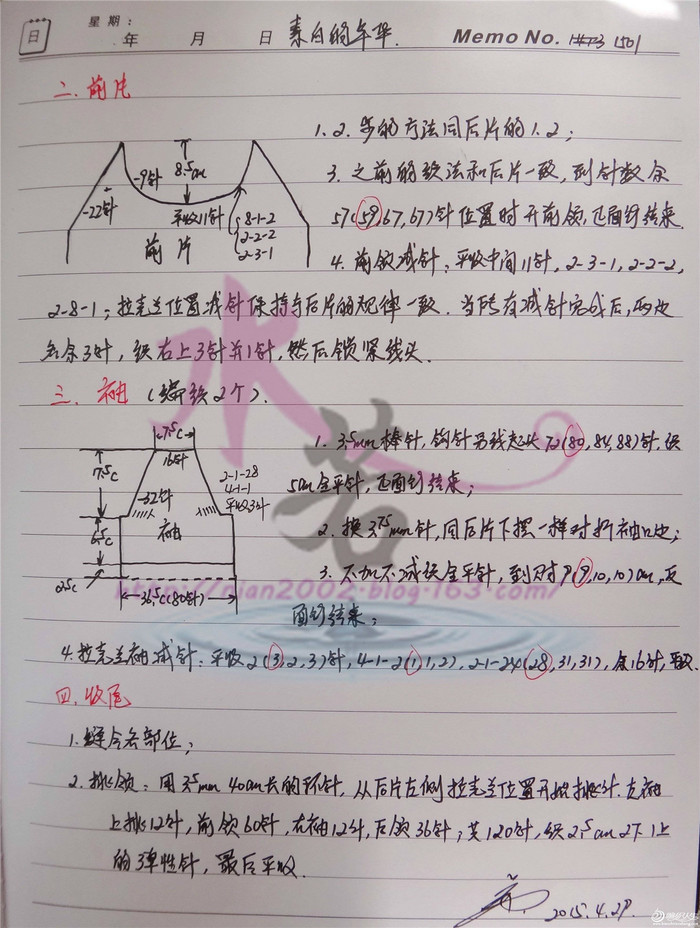 日
星期：
年 月 日 素白的年华. Memo No. 1501
二. 前片
1. 2. 步的方法同后片的1. 2；
8.5cm
-9针
3. 之前的织法和后片一致, 到针数余
-22针
平收11针
57(59,67,67)针位置时开前领, 正面行结束.
8-1-2
2-2-2
2-3-1
前片
4. 前领减针：平收中间11针, 2-3-1, 2-2-2,
2-8-1；拉克兰位置减针保持与后片的规律一致. 当所有减针完成后, 两边
各余3针, 织右上3针并1针, 然后锁紧线头.
三. 袖 (编织2个).
7.5c
16针
1. 3.5mm棒针, 钩针另线起头72(80,84,88)针, 织
17.5c
2-1-28
4-1-1
平收3针
-32针
5cm全平针, 正面行结束；
袖
6.5c
2. 换3.75mm针, 同后片下摆一样对折袖口边；
2.5c
3. 不加不减织全平针, 到对P(9,10,10)cm, 反
36.5c(80针)
面行结束；
http://qian2002.blog.163.com/
水若
4. 拉克兰袖减针：平收2(3,2,3)针, 4-1-2(1,1,2), 2-1-24(28,31,31), 余16针, 平收.
四. 收尾
1. 缝合各部位；
2. 挑领：用3.5mm 40cm长的环针, 从后片左侧拉克兰位置开始挑针. 左袖
上挑12针, 前领60针, 右袖12针, 后领36针；共120针, 织2.5cm 2下1上
的弹性针, 最后平收.
2015.4.29.